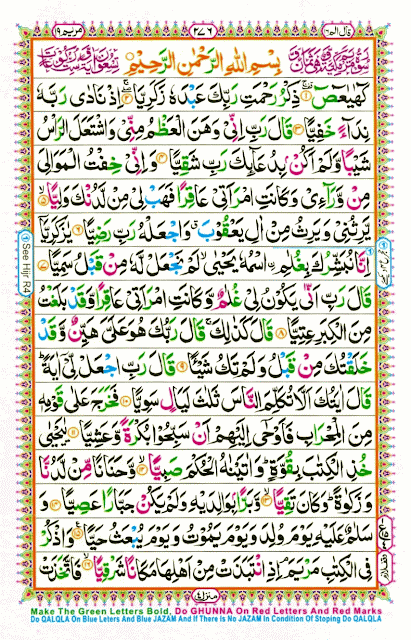 مريم ١٩
٢٧٦
قال الم ١٦
بِسْمِ اللهِ الرَّحْمٰنِ الرَّحِيْمِ
كٓهٰيٰعٓصٓ ۚ۝١ ذِكْرُ رَحْمَتِ رَبِّكَ عَبْدَهٗ زَكَرِيَّا ۖۚ۝٢ اِذْ نَادٰى رَبَّهٗ
نِدَآءً خَفِيًّا ۝٣ قَالَ رَبِّ اِنِّيْ وَهَنَ الْعَظْمُ مِنِّيْ وَاشْتَعَلَ الرَّاْسُ
شَيْبًا وَّلَمْ اَكُنْۢ بِدُعَآئِكَ رَبِّ شَقِيًّا ۝٤ وَاِنِّيْ خِفْتُ الْمَوَالِيَ
مِنْ وَّرَآءِيْ وَكَانَتِ امْرَاَتِيْ عَاقِرًا فَهَبْ لِيْ مِنْ لَّدُنْكَ وَلِيًّا ۙ۝٥
يَّرِثُنِيْ وَيَرِثُ مِنْ اٰلِ يَعْقُوْبَ ۖ وَاجْعَلْهُ رَبِّ رَضِيًّا ۝٦ يٰزَكَرِيَّآ
اِنَّا نُبَشِّرُكَ بِغُلٰمِ ِۨاسْمُهٗ يَحْيٰى ۙ لَمْ نَجْعَلْ لَّهٗ مِنْ قَبْلُ سَمِيًّا ۝٧
قَالَ رَبِّ اَنّٰى يَكُوْنُ لِيْ غُلٰمٌ وَّكَانَتِ امْرَاَتِيْ عَاقِرًا وَّقَدْ بَلَغْتُ
مِنَ الْكِبَرِ عِتِيًّا ۝٨ قَالَ كَذٰلِكَ ۚ قَالَ رَبُّكَ هُوَ عَلَيَّ هَيِّنٌ وَّقَدْ
خَلَقْتُكَ مِنْ قَبْلُ وَلَمْ تَكُ شَيْـًٔا ۝٩ قَالَ رَبِّ اجْعَلْ لِّيْٓ اٰيَةً ؕ
قَالَ اٰيَتُكَ اَلَّا تُكَلِّمَ النَّاسَ ثَلٰثَ لَيَالٍ سَوِيًّا ۝١٠ فَخَرَجَ عَلٰى قَوْمِهٖ
مِنَ الْمِحْرَابِ فَاَوْحٰٓى اِلَيْهِمْ اَنْ سَبِّحُوْا بُكْرَةً وَّعَشِيًّا ۝١١ يٰيَحْيٰى
خُذِ الْكِتٰبَ بِقُوَّةٍ ؕ وَاٰتَيْنٰهُ الْحُكْمَ صَبِيًّا ۙ۝١٢ وَّحَنَانًا مِّنْ لَّدُنَّا
وَزَكٰوةً ؕ وَكَانَ تَقِيًّا ۙ۝١٣ وَّبَرًّۢا بِوَالِدَيْهِ وَلَمْ يَكُنْ جَبَّارًا عَصِيًّا ۝١٤ وَ
سَلٰمٌ عَلَيْهِ يَوْمَ وُلِدَ وَيَوْمَ يَمُوْتُ وَيَوْمَ يُبْعَثُ حَيًّا ۝١٥ وَاذْكُرْ
فِي الْكِتٰبِ مَرْيَمَ ۘ اِذِ انْتَبَذَتْ مِنْ اَهْلِهَا مَكَانًا شَرْقِيًّا ۙ۝١٦ فَاتَّخَذَتْ
منزل ٤
See Hijr R4
Make The Green Letters Bold, Do GHUNNA On Red Letters And Red Marks
Do QALQLA On Blue Leters And Blue JAZAM And If There Is No JAZAM In Condition Of Stoping Do QALQLA